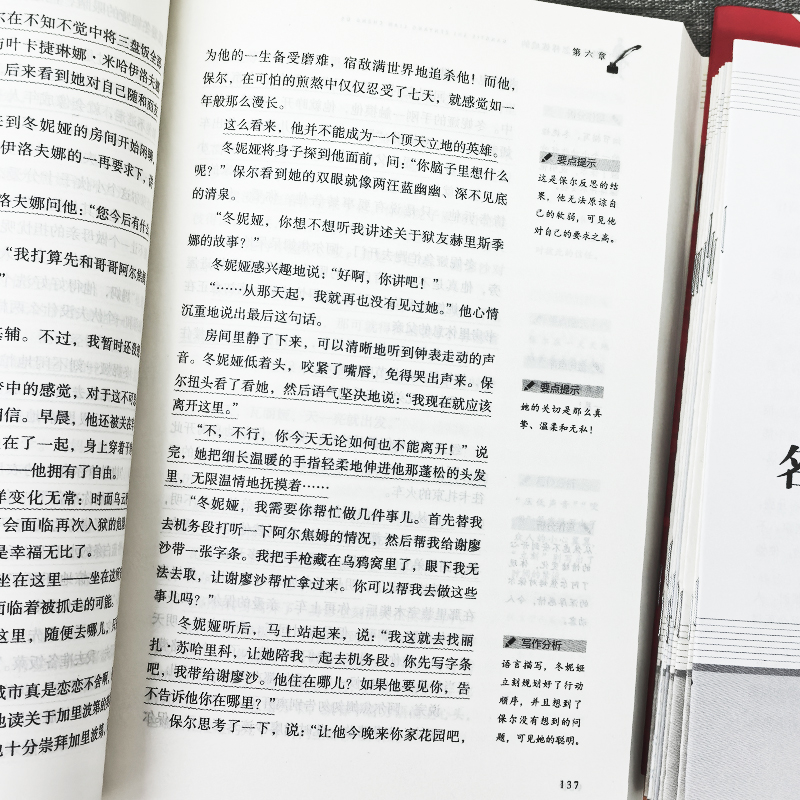 不在不知不觉中将三盘饭全部
与叶卡捷琳娜·米哈伊洛夫娜
后来看到她对自己随和而友
来到冬妮娅的房间开始闲聊
伊洛夫娜的一再要求下，
洛夫娜问他：“您今后有什么
“我打算先和哥哥阿尔焦姆
基辅。不过，我暂时还没
梦中的感觉，对于这不可
相信。早晨，他还被关在
在了一起，身上穿着干
——他拥有了自由。
样变化无常：时而乌云
会面临再次入狱的危
是幸福无比了。
坐在这里——坐在这
面临着被抓走的可能。
这里，随便去哪儿，
城市真是恋恋不舍啊，
他读关于加里波第的
也十分崇拜加里波第，
第六章
为他的一生备受磨难，宿敌满世界地追杀他！而他，
保尔，在可怕的煎熬中仅仅忍受了七天，就感觉如一
年般那么漫长。
这么看来，他并不能成为一个顶天立地的英雄。
冬妮娅将身子探到他面前，问：“你脑子里想什么
呢？”保尔看到她的双眼就像两汪蓝幽幽、深不见底
的清泉。
“冬妮娅，你想不想听我讲述关于狱友赫里斯季
娜的故事？”
冬妮娅感兴趣地说：“好啊，你讲吧！”
“……从那天起，我就再也没有见过她。”他心情
沉重地说出最后这句话。
房间里静了下来，可以清晰地听到钟表走动的声
音。冬妮娅低着头，咬紧了嘴唇，免得哭出声来。保
尔扭头看了看她，然后语气坚决地说：“我现在就应该
离开这里。”
“不，不行，你今天无论如何也不能离开！”说
完，她把细长温暖的手指轻柔地伸进他那蓬松的头发
里，无限温情地抚摸着……
“冬妮娅，我需要你帮忙做几件事儿。首先替我
去机务段打听一下阿尔焦姆的情况，然后帮我给谢廖
沙带一张字条。我把手枪藏在乌鸦窝里了，眼下我无
法去取，让谢廖沙帮忙拿过来。你可以帮我去做这些
事儿吗？”
冬妮娅听后，马上站起来，说：“我这就去找丽
扎·苏哈里科，让她陪我一起去机务段。你先写字条
吧，我带给谢廖沙。他住在哪儿？如果他要见你，告
不告诉他你在哪里？”
保尔思考了一下，说：“让他今晚来你家花园吧，
要点提示
这是保尔反思的结
果，他无法原谅自
己的软弱，可见他
对自己的要求之高。
要点提示
她的关切是那么真
挚、温柔和无私！
写作分析
语言描写，冬妮娅
立刻规划好了行动
顺序，并且想到了
保尔没有想到的问
题，可见她的聪明。
137
名